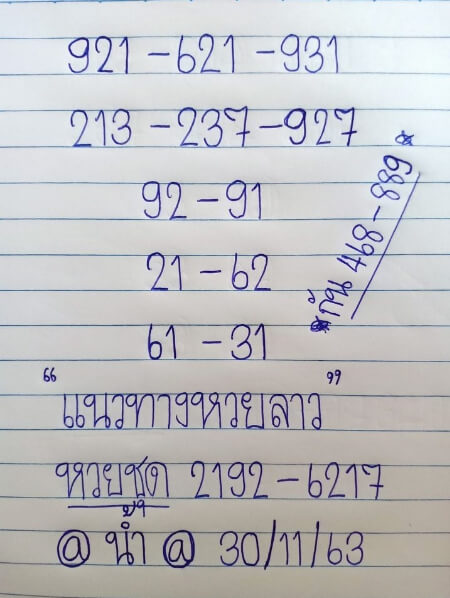 921 - 621 - 931
213 - 237 - 927
92 - 91
21 - 62
61 - 31
กัน 468 - 889
"แนวทางหวยลาว"
หวยชุด 2192 - 6217
@ น้ำ @ 30/11/63